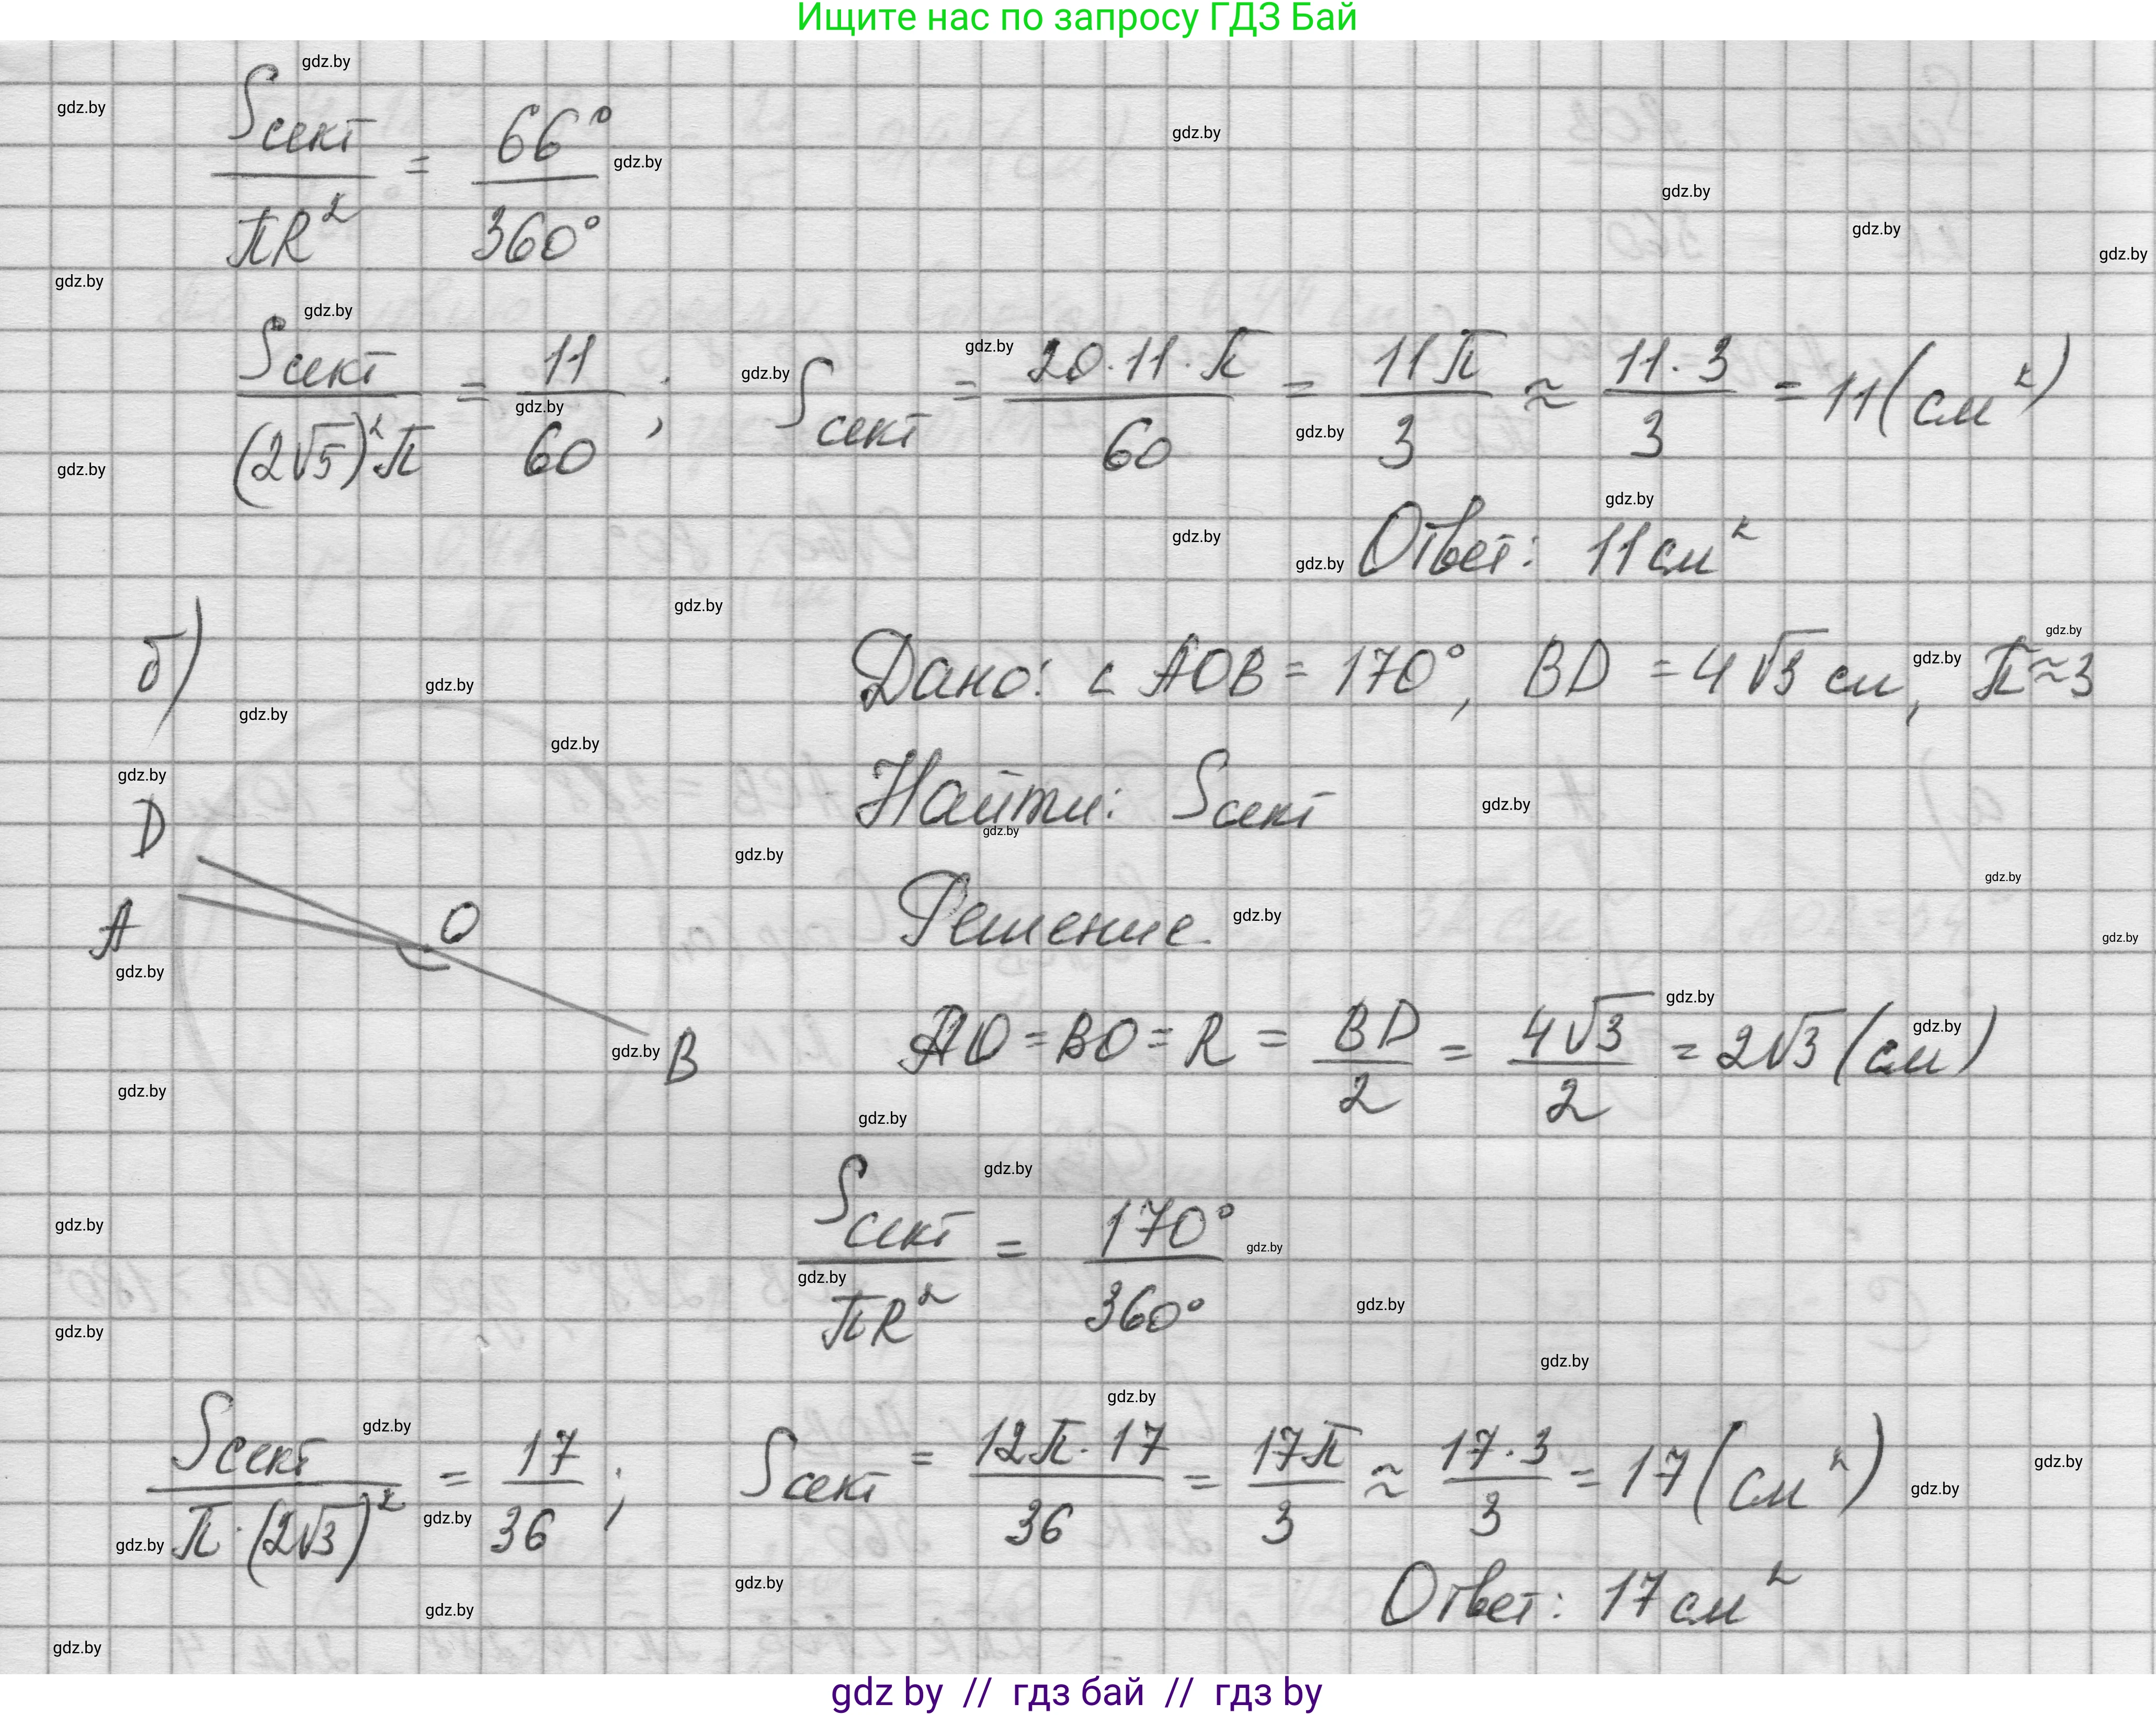 Ищите нас по запросу ГДЗ Бай
Sсект / πR² = 66° / 360°
Sсект / (2√5)²π = 11 / 60 ; Sсект = 20·11·π / 60 = 11π / 3 ≈ 11·3 / 3 = 11 (см²)
Ответ: 11 см²
б)
Дано: ∠ AOB = 170°, BD = 4√3 см, π≈3
Найти: Sсект
D
A
O
B
Решение.
AO = BO = R = BD / 2 = 4√3 / 2 = 2√3 (см)
Sсект / πR² = 170° / 360°
Sсект / π·(2√3)² = 17 / 36 ; Sсект = 12π·17 / 36 = 17π / 3 ≈ 17·3 / 3 = 17 (см²)
Ответ: 17 см²
gdz by // гдз бай // гдз by